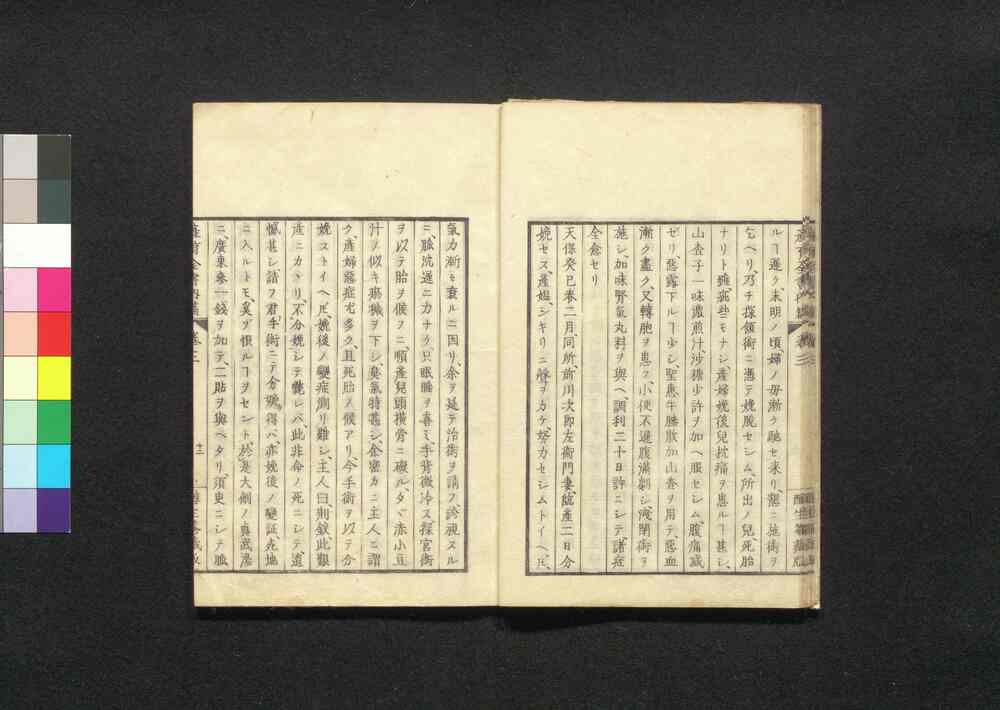 ルヿ遲ク未明ノ頃婦ノ母漸ク馳セ来リ懇ニ施術ヲ
乞ヘリ乃チ探頷術ニ憑テ娩脱セシム所出ノ兒死胎
ナリト雖疵些モナシ産婦娩後兒枕痛ヲ患ルヿ甚シ
山査子一味濃煎汁沙糖少許ヲ加ヘ服セシム腹痛減
ゼリ惡露下ルヿ少シ聖惠牛膝散加山査ヲ用テ惡血
漸ク盡ク又轉胞ヲ患フ小便不通腹滿劇シ洩閉術ヲ
施シ加味腎氣丸料ヲ與ヘ調利二十日許ニシテ諸症
全愈セリ
天保癸巳春二月同所前川次郎左衞門妻臨産二日分
娩セス産媼シキリニ聲ヲカケ努力セシムトイヘ𪜈
氣力漸々衰ルニ因リ余ヲ延テ治術ヲ請フ診視スル
ニ脈沈遲ニ力ナク只眠睡ヲ喜ミ手背微冷ス探宮術
ヲ以テ胎ヲ候フニ順産兒頭横骨ニ礙ル夕ヾ赤小豆
汁ノ似キ瘀穢ヲ下シ臭氣特甚シ余密カニ主人ニ謂
ク産婦惡症尤多ク且死胎ノ候アリ今手術ヲ以テ分
娩ストイヘ𪜈娩後ノ變症測リ難シ主人曰則欽此艱
産ニカヽリ不分娩シテ斃レバ此非命ノ死ニシテ遺
憾甚シ請フ君手術ニテ分娩得バ亦娩後ノ變証危地
ニ入ルトモ奚ヲ恨ルヿヲセント於是大劑ノ眞武湯
ニ廣東參一錢ヲ加テ二貼ヲ與ヘタリ須更ニシテ脈
卷三
十三